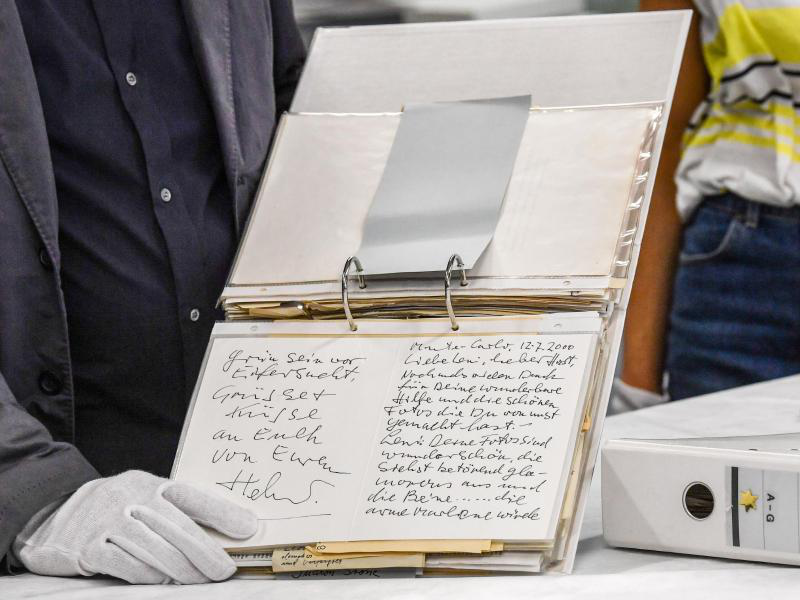 Grün sein vor
Eifersucht,
Grüsse +
Küsse
an Euch
von Euren
Helmut.
Monte-Carlo, 12.7.2000
Liebe Leni, lieber Horst,
Nochmals vielen Dank
für Deine wunderbare
Hilfe und die schönen
Fotos die Du von uns
gemacht hast.-
Leni: Deine Fotos sind
wunderschön, Du
siehst betörend gla-
mourous aus und
die Beine......die
arme Marlene würde
und
Sharon Stone
A-G